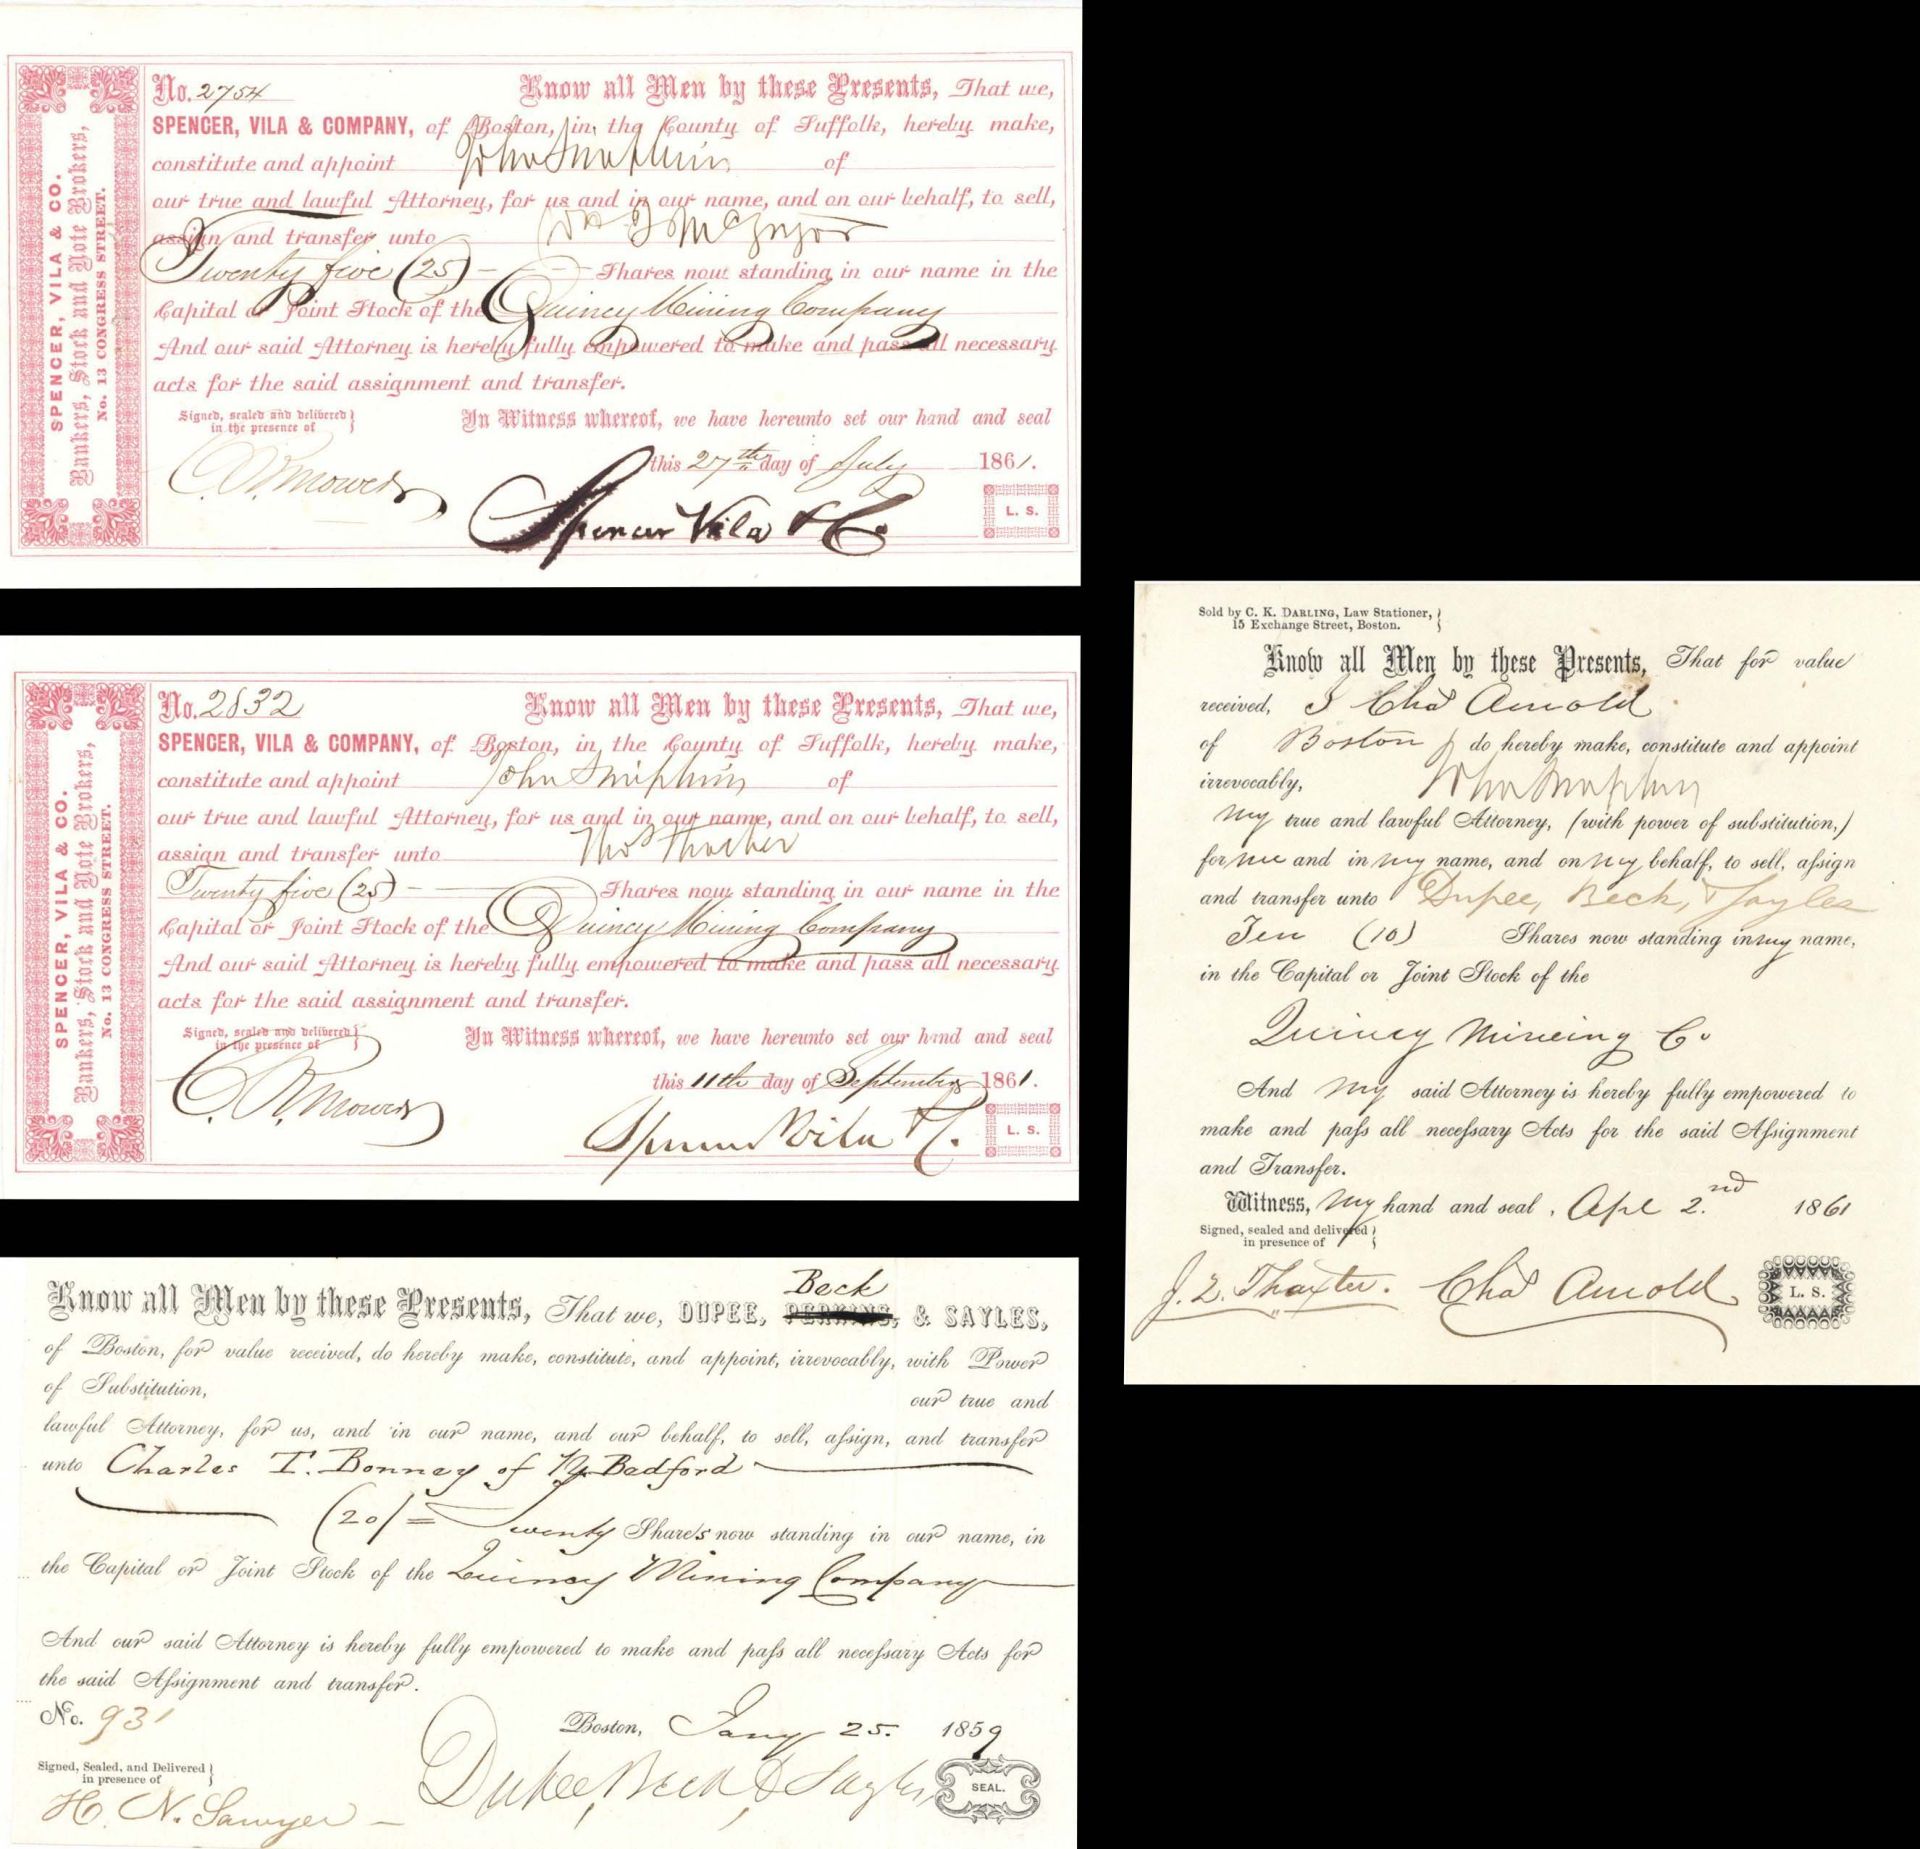 SPENCER, VILA & CO.
Bankers, Stock and Note Brokers,
No. 13 CONGRESS STREET.
No. 2754 Know all Men by these Presents, That we,
SPENCER, VILA & COMPANY, of Boston, in the County of Suffolk, hereby make,
constitute and appoint John Simpkins of
our true and lawful Attorney, for us and in our name, and on our behalf, to sell,
assign and transfer unto
Twenty five (25) Shares now standing in our name in the
Capital or Joint Stock of the Quincy Mining Company
And our said Attorney is hereby fully empowered to make and pass all necessary
acts for the said assignment and transfer.
Signed, sealed and delivered } In Witness whereof, we have hereunto set our hand and seal
in the presence of
this 27th day of July 1861.
C. R. Mowers
Spencer Vila & Co
L. S.
SPENCER, VILA & CO.
Bankers, Stock and Note Brokers,
No. 13 CONGRESS STREET.
No. 2832 Know all Men by these Presents, That we,
SPENCER, VILA & COMPANY, of Boston, in the County of Suffolk, hereby make,
constitute and appoint John Simpkins of
our true and lawful Attorney, for us and in our name, and on our behalf, to sell,
assign and transfer unto Thos Thacher
Twenty five (25) Shares now standing in our name in the
Capital or Joint Stock of the Quincy Mining Company
And our said Attorney is hereby fully empowered to make and pass all necessary
acts for the said assignment and transfer.
Signed, sealed and delivered } In Witness whereof, we have hereunto set our hand and seal
in the presence of
this 11th day of September 1861.
C. R. Mowers
Spencer Vila & Co.
L. S.
Beck
Know all Men by these Presents, That we, DUPEE, PERKINS, & SAYLES,
of Boston, for value received, do hereby make, constitute, and appoint, irrevocably, with Power
of Substitution, our true and
lawful Attorney, for us, and in our name, and our behalf, to sell, assign, and transfer
unto Charles T. Bonney of N. Bedford
(20) = Twenty Shares now standing in our name, in
the Capital or Joint Stock of the Quincy Mining Company
And our said Attorney is hereby fully empowered to make and pass all necessary Acts for
the said Assignment and transfer.
No. 931 Boston, Jany 25. 1859
Signed, Sealed, and Delivered }
in presence of
H. N. Sawyer
Dupee, Beck, & Sayles
SEAL.
Sold by C. K. DARLING, Law Stationer,
15 Exchange Street, Boston.
Know all Men by these Presents, That for value
received, I Chas Arnold
of Boston do hereby make, constitute and appoint
irrevocably, John Simpkins
My true and lawful Attorney, (with power of substitution,)
for me and in my name, and on my behalf, to sell, assign
and transfer unto Dupee, Beck, & Sayles
Ten (10) Shares now standing in my name,
in the Capital or Joint Stock of the
Quincy Mineing Co
And My said Attorney is hereby fully empowered to
make and pass all necessary Acts for the said Assignment
and Transfer.
Witness, My hand and seal, Apl 2.nd 1861
Signed, sealed and delivered }
in presence of
J. L. Thaxter. Chas Arnold
L. S.